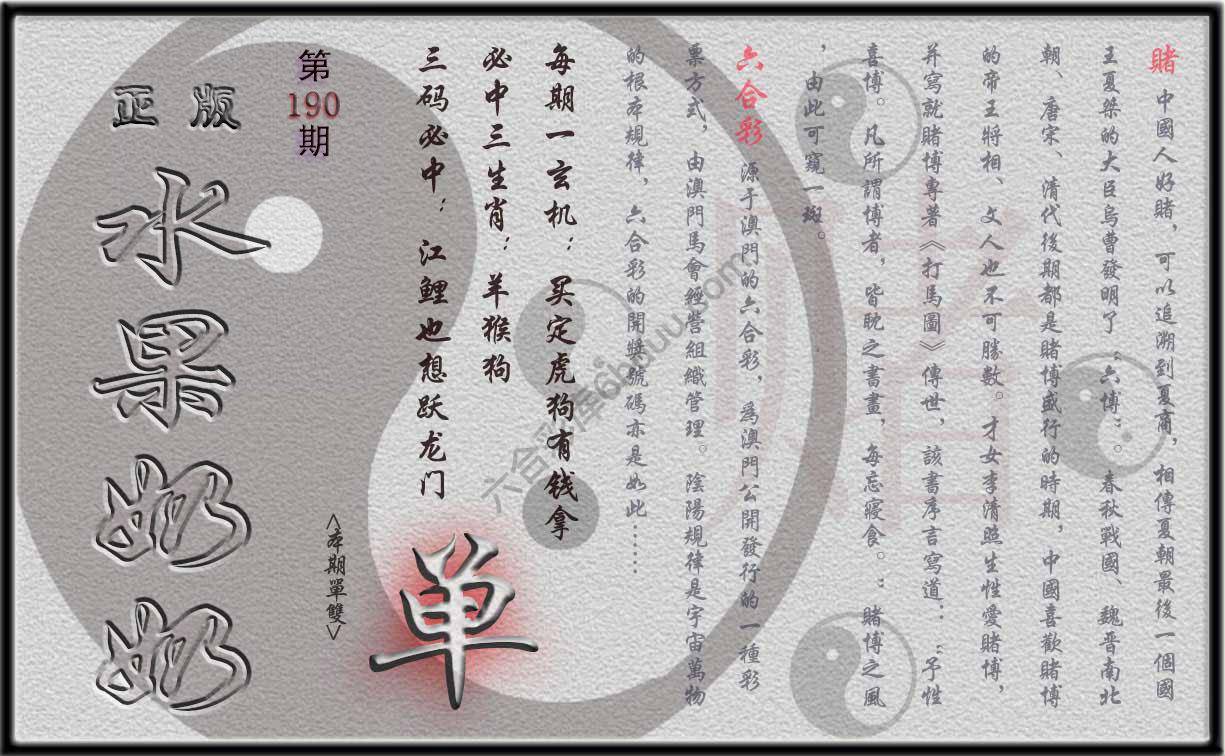 賭 中國人好賭，可以追溯到夏商，相傳夏朝最後一個國
王夏桀的大臣烏曹發明了“六博”。春秋戰國、魏晋南北
朝、唐宋、清代後期都是賭博盛行的時期，中國喜歡賭博
的帝王將相、文人也不可勝數。才女李清照生性愛賭博，
并寫就賭博專著《打馬圖》傳世，該書序言寫道：“予性
喜博。凡所謂博者，皆耽之書畫，每忘寢食。：賭博之風
，由此可窺一斑。
六合彩 源于澳門的六合彩，為澳門公開發行的一種彩
票方式，由澳門馬會經營組織管理。陰陽規律是宇宙萬物
的根本規律，六合彩的開獎號碼亦是如此……
每期一玄机：买定虎狗有钱拿
必中三生肖：羊猴狗
三码必中：江鲤也想跃龙门
单
<本期單雙>
第190期
正版
水果奶奶
賭
六合彩库6hduu.com